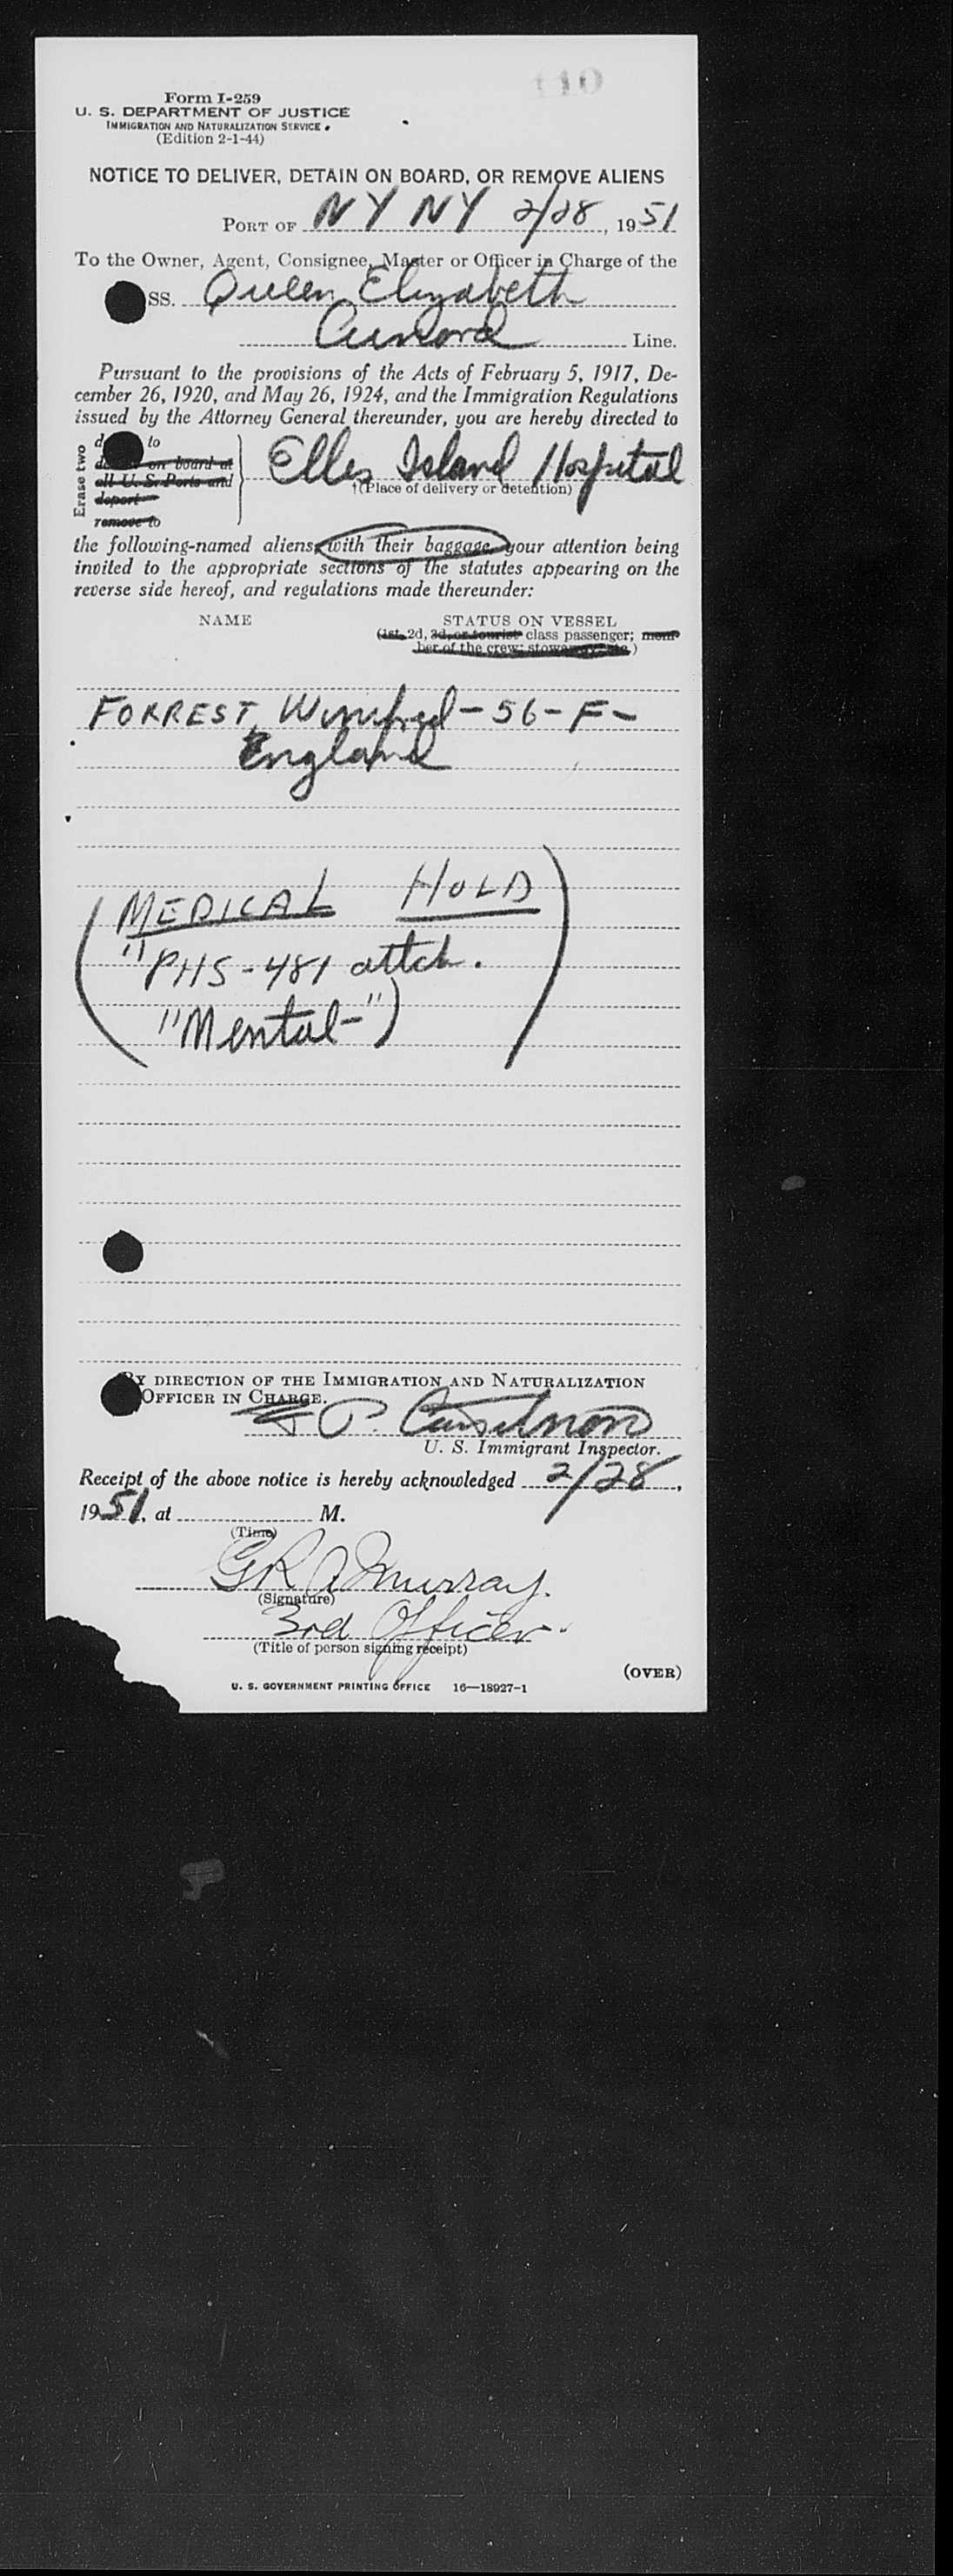 110
Form I-259
U. S. DEPARTMENT OF JUSTICE
IMMIGRATION AND NATURALIZATION SERVICE
(Edition 2-1-44)
NOTICE TO DELIVER, DETAIN ON BOARD, OR REMOVE ALIENS
PORT OF NY NY 2/28, 1951
To the Owner, Agent, Consignee, Master or Officer in Charge of the
SS. Queen Elizabeth
Cunard Line.
Pursuant to the provisions of the Acts of February 5, 1917, De-
cember 26, 1920, and May 26, 1924, and the Immigration Regulations
issued by the Attorney General thereunder, you are hereby directed to
Erase two
to
on board at
all U. S. Ports and
deport
remove to
Ellis Island Hospital
†(Place of delivery or detention)
the following-named aliens, with their baggage, your attention being
invited to the appropriate sections of the statutes appearing on the
reverse side hereof, and regulations made thereunder:
NAME STATUS ON VESSEL
(1st, 2d, 3d, or tourist class passenger; mem-
ber of the crew; stowaway; etc.)
FORREST, Winifred - 56 - F -
England
(MEDICAL HOLD
"PHS-481 attch.
"Mental-")
BY DIRECTION OF THE IMMIGRATION AND NATURALIZATION
OFFICER IN CHARGE.
P.
U. S. Immigrant Inspector.
Receipt of the above notice is hereby acknowledged 2/28,
1951, at M.
(Time)
G R A Murray.
(Signature)
3rd Officer.
(Title of person signing receipt)
(OVER)
U. S. GOVERNMENT PRINTING OFFICE 16—18927-1